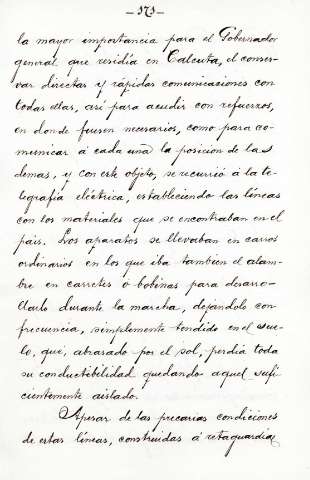 - 373 -
la mayor importancia para el Gobernador
general que residía en Calcuta, el conser-
var directas y rápidas comunicaciones con
todas ellas, así para acudir con refuerzos,
en donde fuesen necesarios, como para co-
municar á cada una la posicion de las
demas, y con este objeto, se recurrió á la te-
legrafía eléctrica, estableciendo las líneas
con los materiales que se encontraban en el
pais. Los aparatos se llevaban en carros
ordinarios en los que iba tambien el alam-
bre en carretes ó bobinas para desarro-
llarlo durante la marcha, dejandolo con
frecuencia, simplemente tendido en el sue-
lo, que, abrasado por el sol, perdía toda
su conductibilidad quedando aquel sufi
cientemente aislado.
Apesar de las precarias condiciones
de estas líneas, construidas á retaguardia